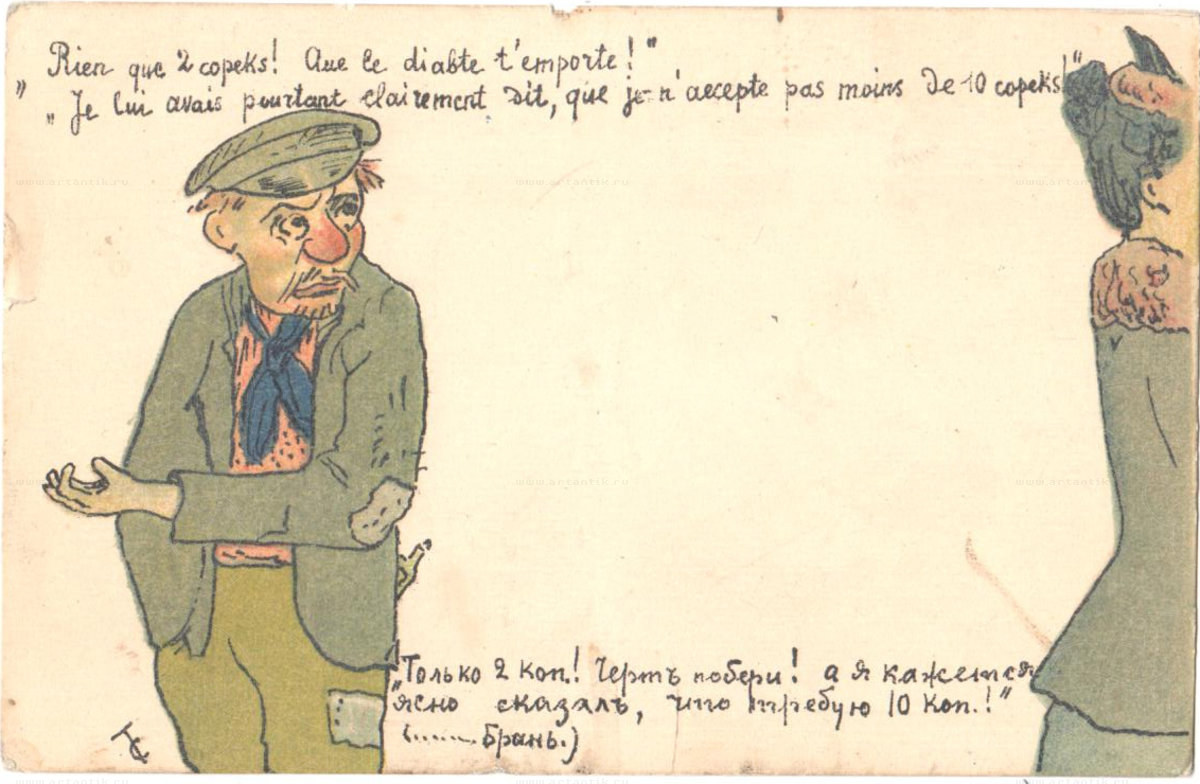 „Rien que 2 copeks! Que le diable t'emporte!"
„Je lui avais pourtant clairement dit, que je n'accepte pas moins de 10 copeks!"
„Только 2 коп.! Чертъ побери! а я кажется
ясно сказалъ, что требую 10 коп.!"
(....... Брань.)
www.artantik.ru